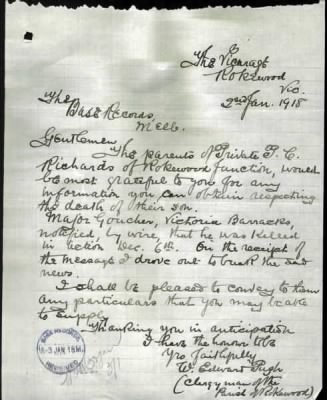 The Vicarage
Rokewood
Vic.
2nd Jan. 1918
The
Base Records,
Melb.
Gentlemen
The parents of Private T. C.
Richards of Rokewood Junction, would
be most grateful to you for any
information you can obtain respecting
the death of their son.
Major Goucher, Victoria Barracks,
notified, by wire, that he was killed
in action Dec. 6th. On the receipt
of the message I drove out to break the sad
news.
I shall be pleased to convey to them
any particulars that you may be able
to supply.
Thanking you in anticipation
I have the honor to be
Yrs faithfully
W. Edward Pugh
(Clergyman of the
Parish of Rokewood)
BASE RECORDS
-3 JAN 1918
RECEIVED